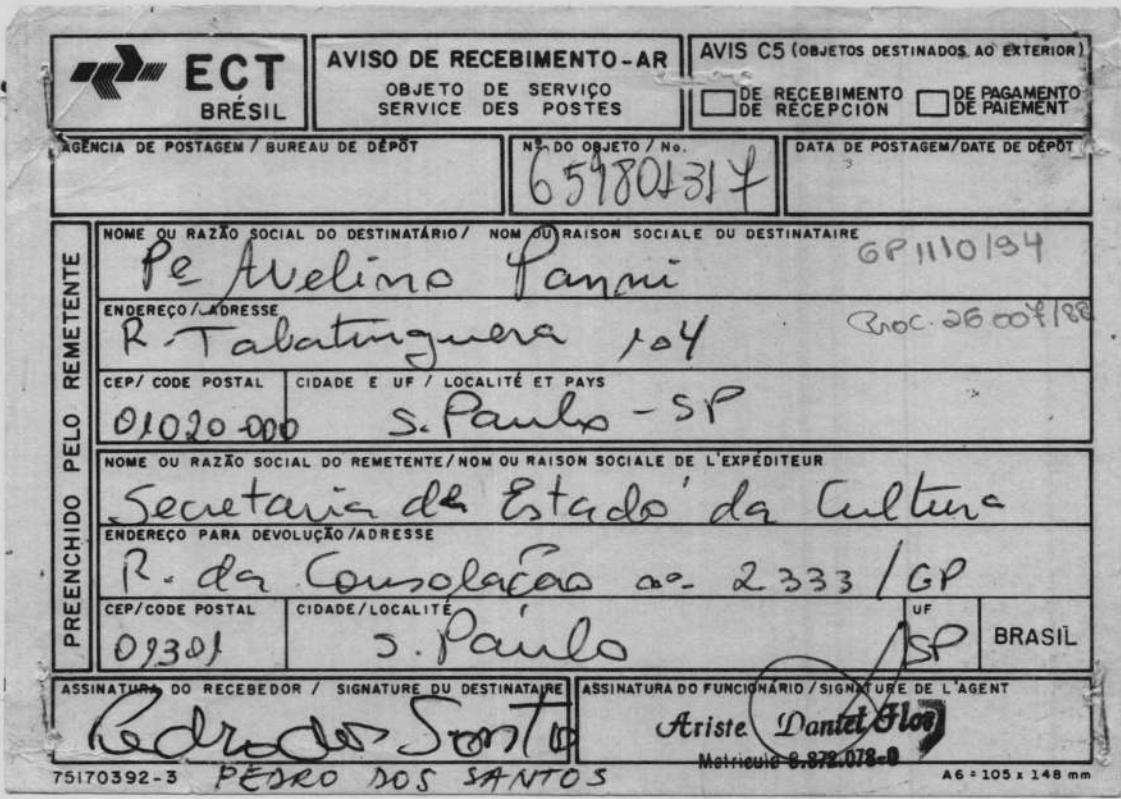 ECT
BRÉSIL
AVISO DE RECEBIMENTO-AR
OBJETO DE SERVIÇO
SERVICE DES POSTES
AVIS C5 (OBJETOS DESTINADOS AO EXTERIOR)
DE RECEBIMENTO
DE RÉCEPCION
DE PAGAMENTO
DE PAIEMENT
AGÊNCIA DE POSTAGEM / BUREAU DE DÉPÔT
Nº DO OBJETO / No.
659801317
DATA DE POSTAGEM/DATE DE DÉPÔT
PREENCHIDO PELO REMETENTE
NOME OU RAZÃO SOCIAL DO DESTINATÁRIO / NOM OU RAISON SOCIALE DU DESTINATAIRE
Pe Avelino Panni
GP 1110/94
ENDEREÇO / ADRESSE
R. Tabatinguera 104
Proc. 26007/88
CEP/ CODE POSTAL
01020-000
CIDADE E UF / LOCALITÉ ET PAYS
S. Paulo - SP
NOME OU RAZÃO SOCIAL DO REMETENTE/NOM OU RAISON SOCIALE DE L'EXPÉDITEUR
Secretaria de Estado da Cultura
ENDEREÇO PARA DEVOLUÇÃO/ADRESSE
R. da Consolação nº 2333 / GP
CEP/CODE POSTAL
01301
CIDADE/LOCALITÉ
S. Paulo
UF
SP
BRASIL
ASSINATURA DO RECEBEDOR / SIGNATURE DU DESTINATAIRE
Pedro dos Santos
ASSINATURA DO FUNCIONÁRIO / SIGNATURE DE L'AGENT
Ariste Daniel
Matricula 8.872.078-0
75170392-3
PEDRO DOS SANTOS
A6 = 105 x 148 mm